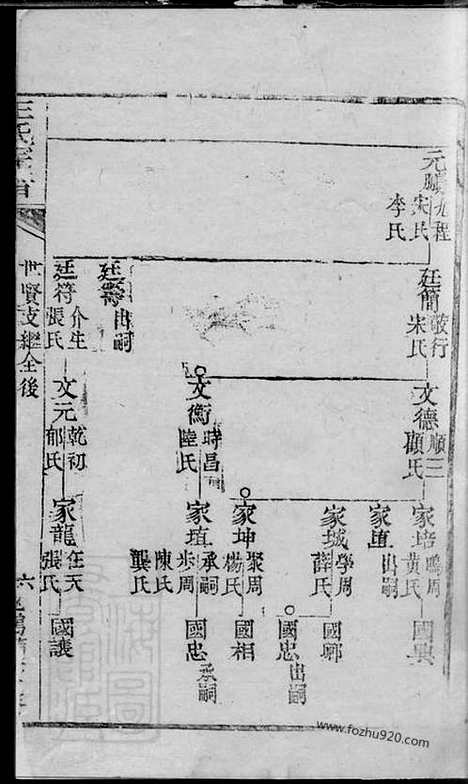 元
九程
宋氏
李氏
廷簡
敬行
宋氏
廷
出嗣
廷符
介生
張氏
文德
順三
顧氏
文衡
時昌
陸氏
文元
乾初
郁氏
家培
鳴周
黃氏
家直
出嗣
家城
學周
薛氏
家坤
聚周
楊氏
家直
承嗣
步周
陳氏
龔氏
家龍
在天
張氏
國興
國鄉
國忠
出嗣
國相
國忠
承嗣
國護
世賢支繼全後
六
www.fozhu920.com